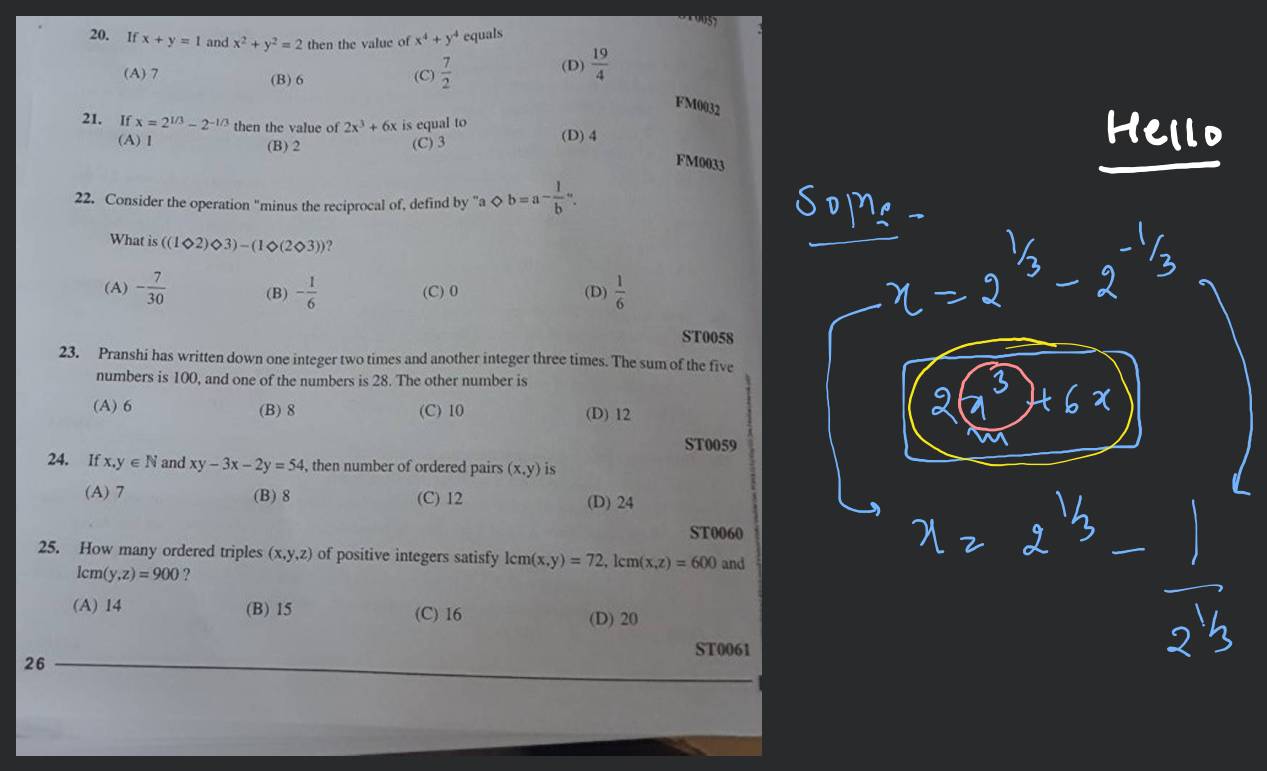 ST0057
20. If x + y = 1 and x² + y² = 2 then the value of x⁴ + y⁴ equals
(A) 7 (B) 6 (C) 7/2 (D) 19/4
FM0032
21. If x = 2^1/3 – 2^–1/3 then the value of 2x³ + 6x is equal to
(A) 1 (B) 2 (C) 3 (D) 4
FM0033
22. Consider the operation "minus the reciprocal of, defind by "a ◇ b = a – 1/b".
What is ((1◇2)◇3) – (1◇(2◇3))?
(A) –7/30 (B) –1/6 (C) 0 (D) 1/6
ST0058
23. Pranshi has written down one integer two times and another integer three times. The sum of the five
numbers is 100, and one of the numbers is 28. The other number is
(A) 6 (B) 8 (C) 10 (D) 12
ST0059
24. If x,y ∈ ℕ and xy – 3x – 2y = 54, then number of ordered pairs (x,y) is
(A) 7 (B) 8 (C) 12 (D) 24
ST0060
25. How many ordered triples (x,y,z) of positive integers satisfy lcm(x,y) = 72, lcm(x,z) = 600 and
lcm(y,z) = 900 ?
(A) 14 (B) 15 (C) 16 (D) 20
ST0061
26
Hello
x = 2^1/3 – 2^-1/3
2x³ + 6x
x = 2^1/3 – 1/2^1/3